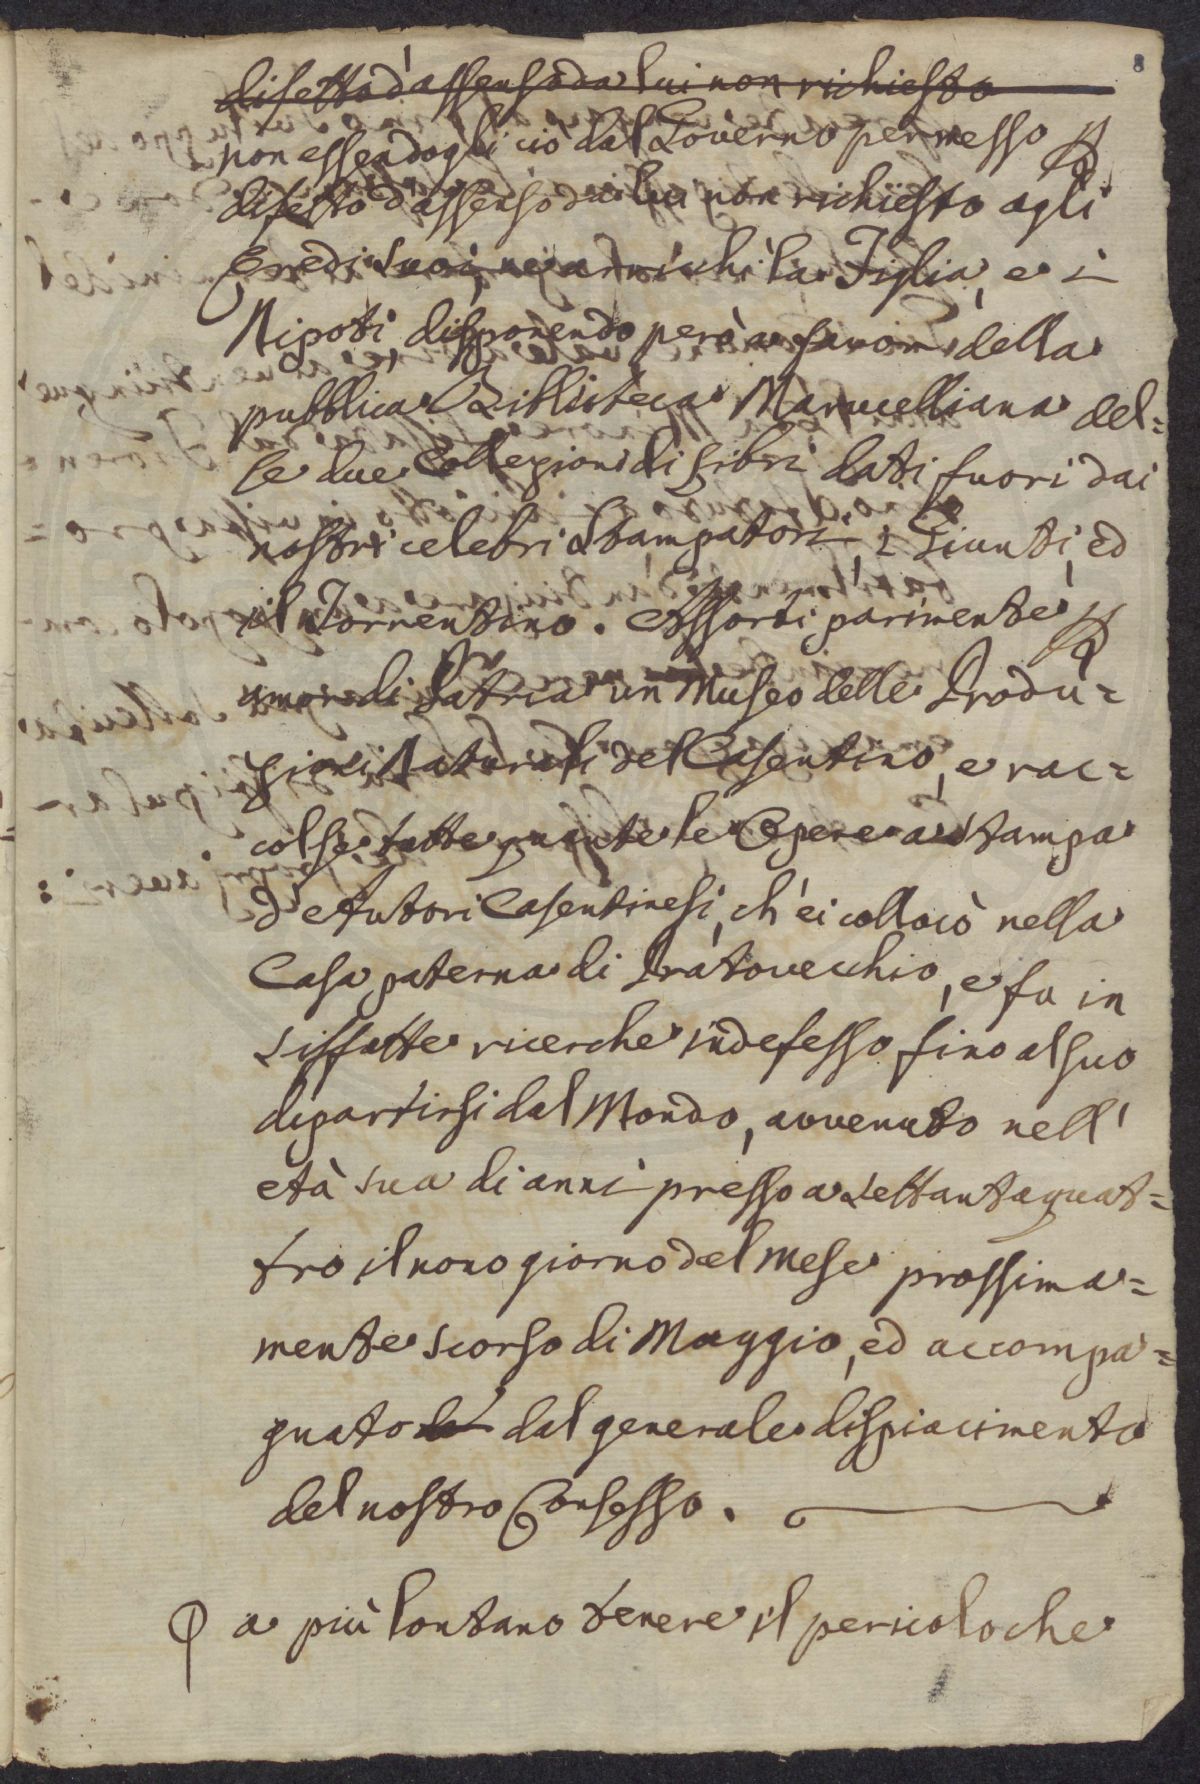 8
difetto d'assenso da lui non richiesto
non essendogli ciò dal Governo permesso p
difetto d'assenso da lui non richiesto agli
Eredi suoi, ne arricchì la Figlia, e i
Nipoti disponendo però a favor della
pubblica Biblioteca Marucelliana del=
le due Collezioni di Libri dati fuori dai
nostri celebri Stampatori i Giunti, ed
il Torrentino. Assortì parimente p
amor di Patria un Museo delle Produ=
zioni Naturali del Casentino, e rac=
colse tutte quante le Opere a Stampa
d'Autori Casentinesi, ch'ei collocò nella
Casa paterna di Pratovecchio, e fu in
siffatte ricerche indefesso fino al suo
dipartirsi dal Mondo, avvenuto nell'
età sua di anni presso a settantaquat=
tro il nono giorno del Mese prossima=
mente scorso di Maggio, ed accompa=
gnato dal generale dispiacimento
del nostro Consesso.
P a più lontano tenere il pericolo che